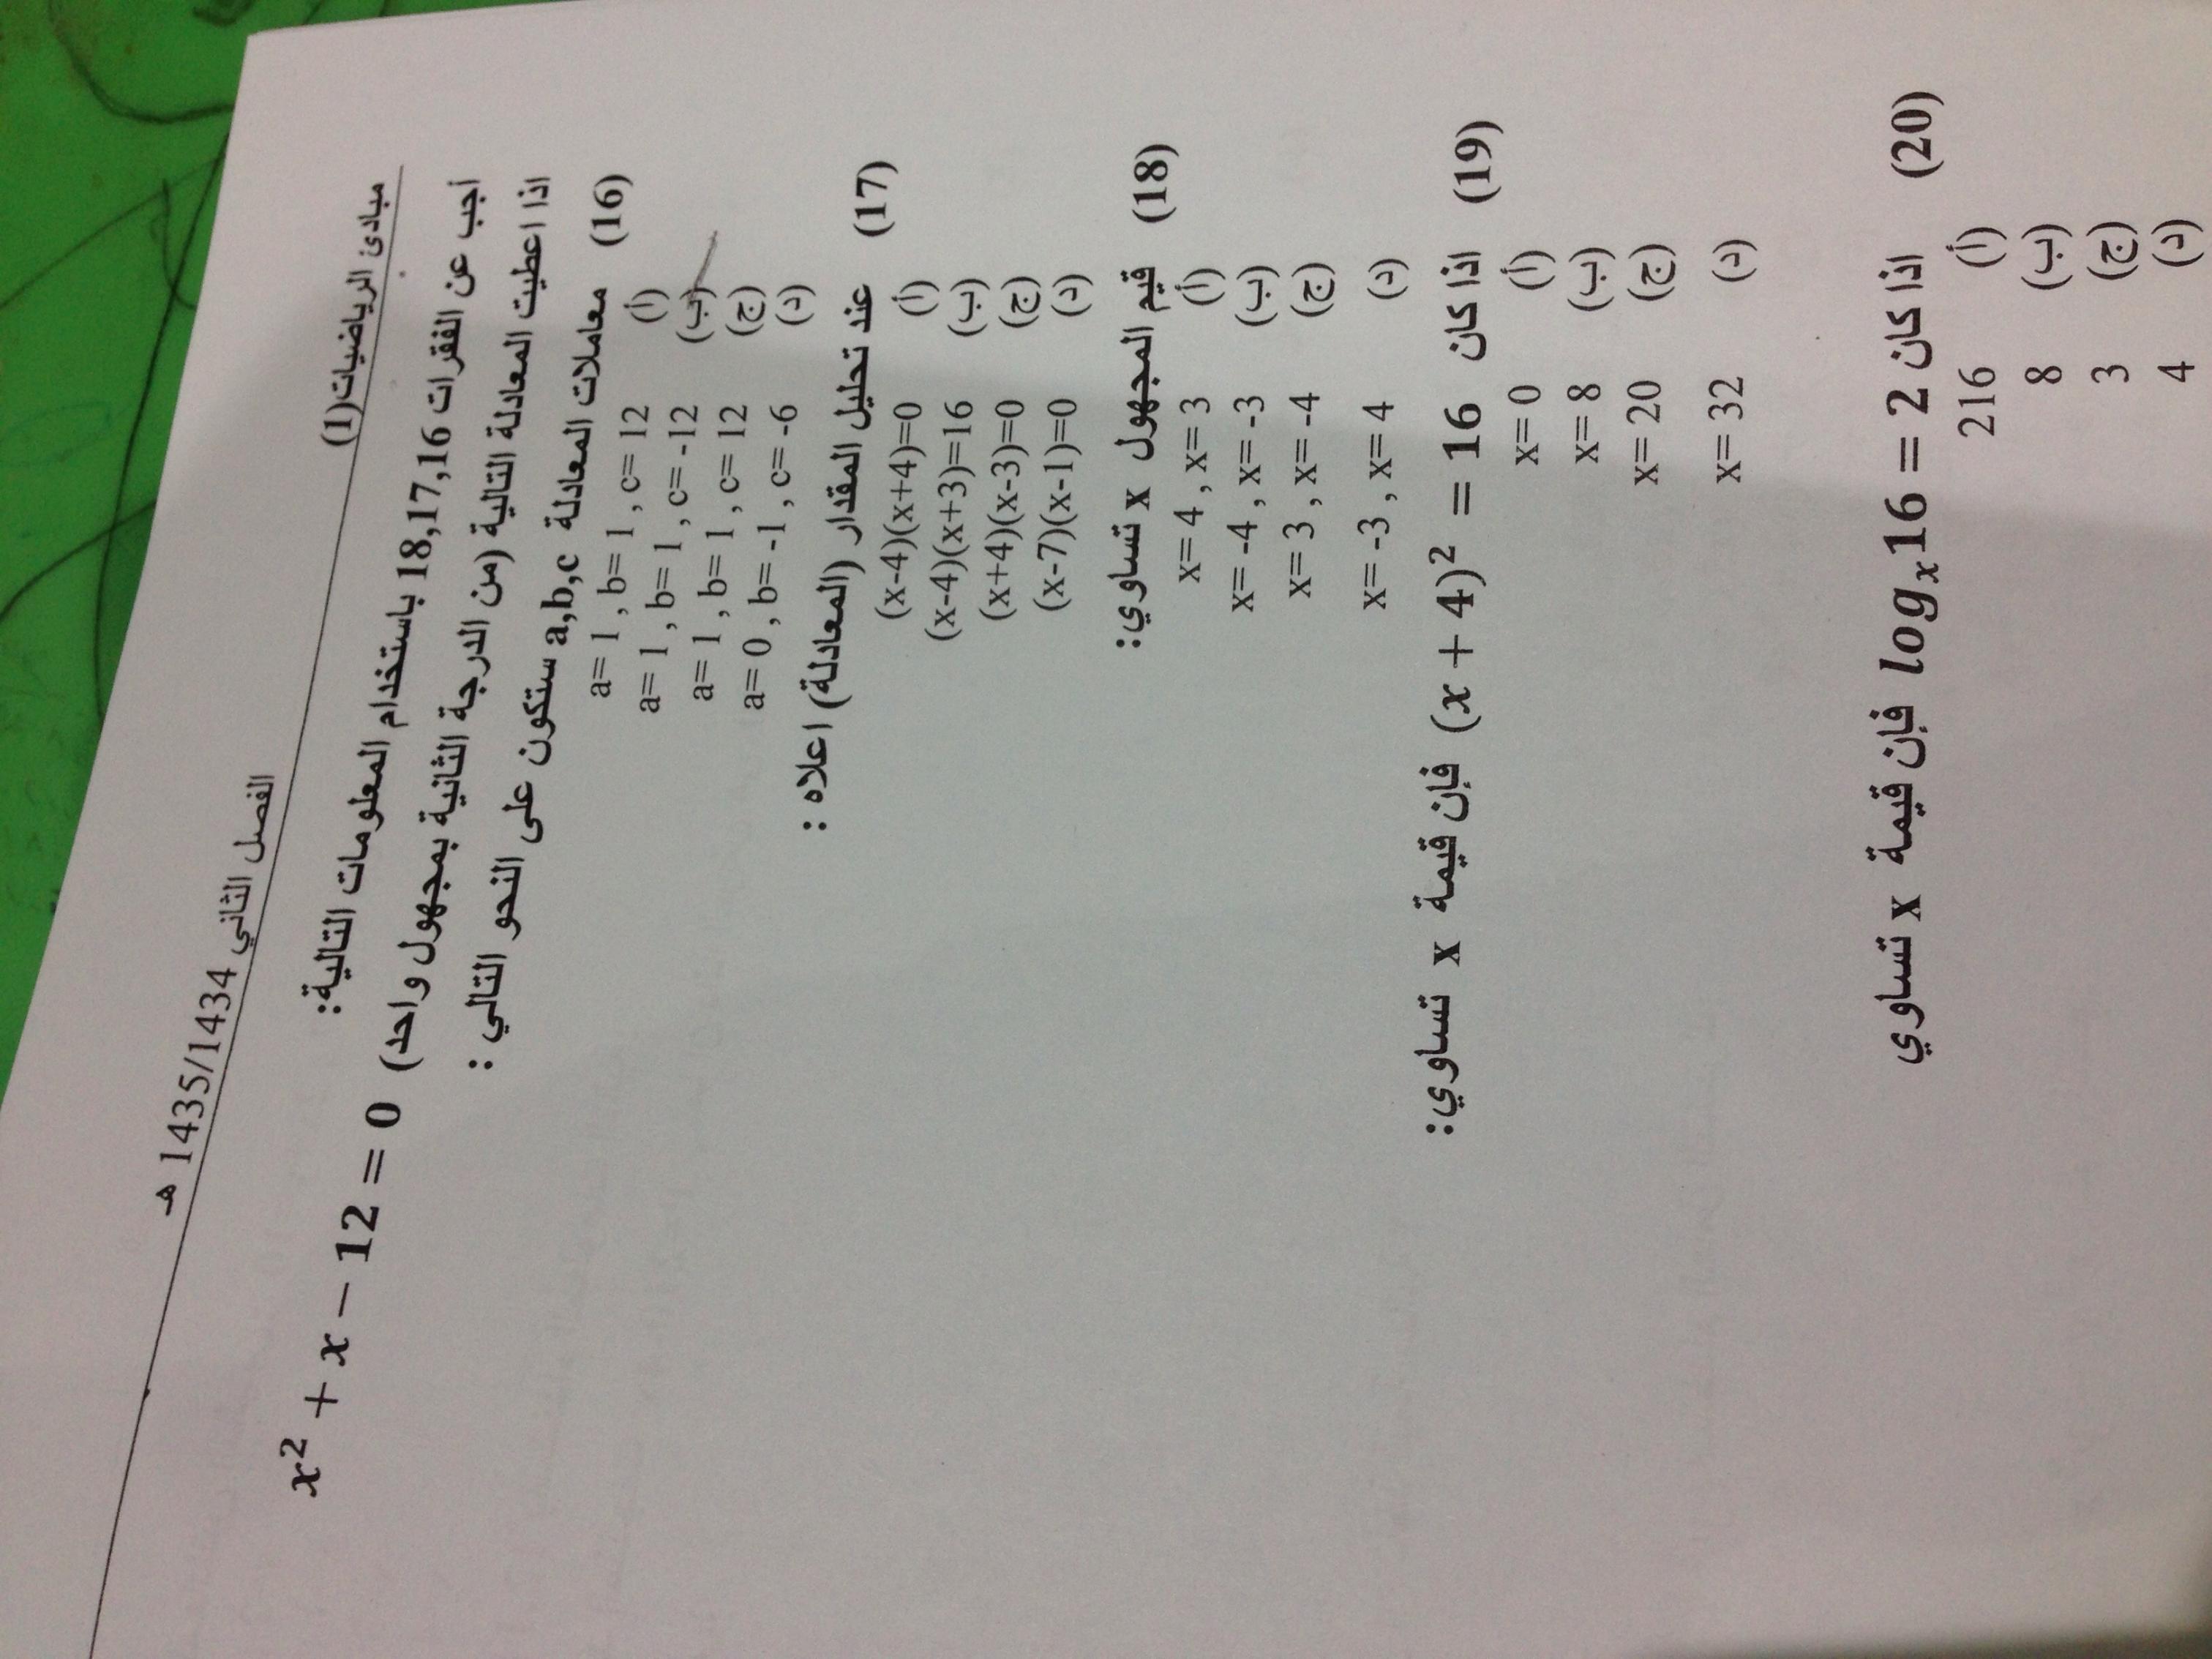 مبادئ الرياضيات(1) الفصل الثاني 1435/1434 هـ
أجب عن الفقرات 18,17,16 باستخدام المعلومات التالية:
اذا اعطيت المعادلة التالية (من الدرجة الثانية بمجهول واحد) x² + x − 12 = 0
(16) معاملات المعادلة a,b,c ستكون على النحو التالي :
(أ) a= 1 , b= 1 , c= 12
(ب) a= 1 , b= 1 , c= -12
(ج) a= 1 , b= 1 , c= 12
(د) a= 0 , b= -1 , c= -6
(17) عند تحليل المقدار (المعادلة) اعلاه :
(أ) (x-4)(x+4)=0
(ب) (x-4)(x+3)=16
(ج) (x+4)(x-3)=0
(د) (x-7)(x-1)=0
(18) قيم المجهول x تساوي:
(أ) x= 4 , x= 3
(ب) x= -4 , x= -3
(ج) x= 3 , x= -4
(د) x= -3 , x= 4
(19) اذا كان (x + 4)² = 16 فإن قيمة x تساوي:
(أ) x= 0
(ب) x= 8
(ج) x= 20
(د) x= 32
(20) اذا كان logₓ16 = 2 فإن قيمة x تساوي
(أ) 216
(ب) 8
(ج) 3
(د) 4